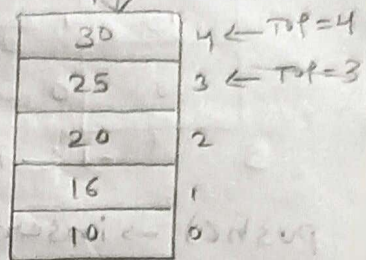 30 4 ← Top=4
25 3 ← Top=3
20 2
16 1
10 0